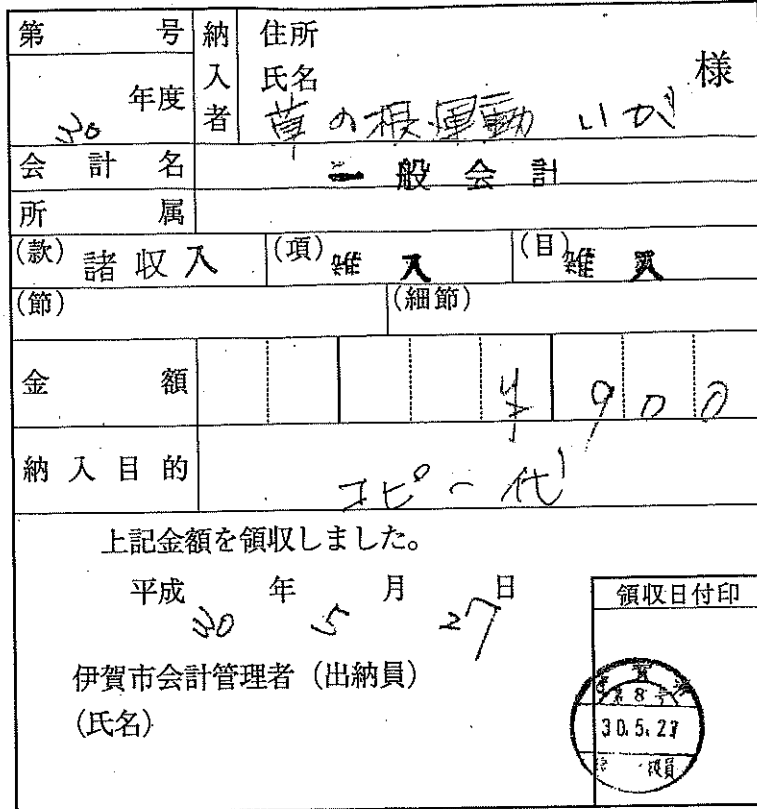 第 号
納入者
住所
氏名
草の根運動 いが 様
30 年度
会計名 一般会計
所属
(款) 諸収入 (項) 雑入 (目) 雑入
(節) (細節)
金額 ¥900
納入目的 コピー代
上記金額を領収しました。
平成 30 年 5 月 27 日
領収日付印
伊賀市会計管理者（出納員）
(氏名)
第8号
30.5.27